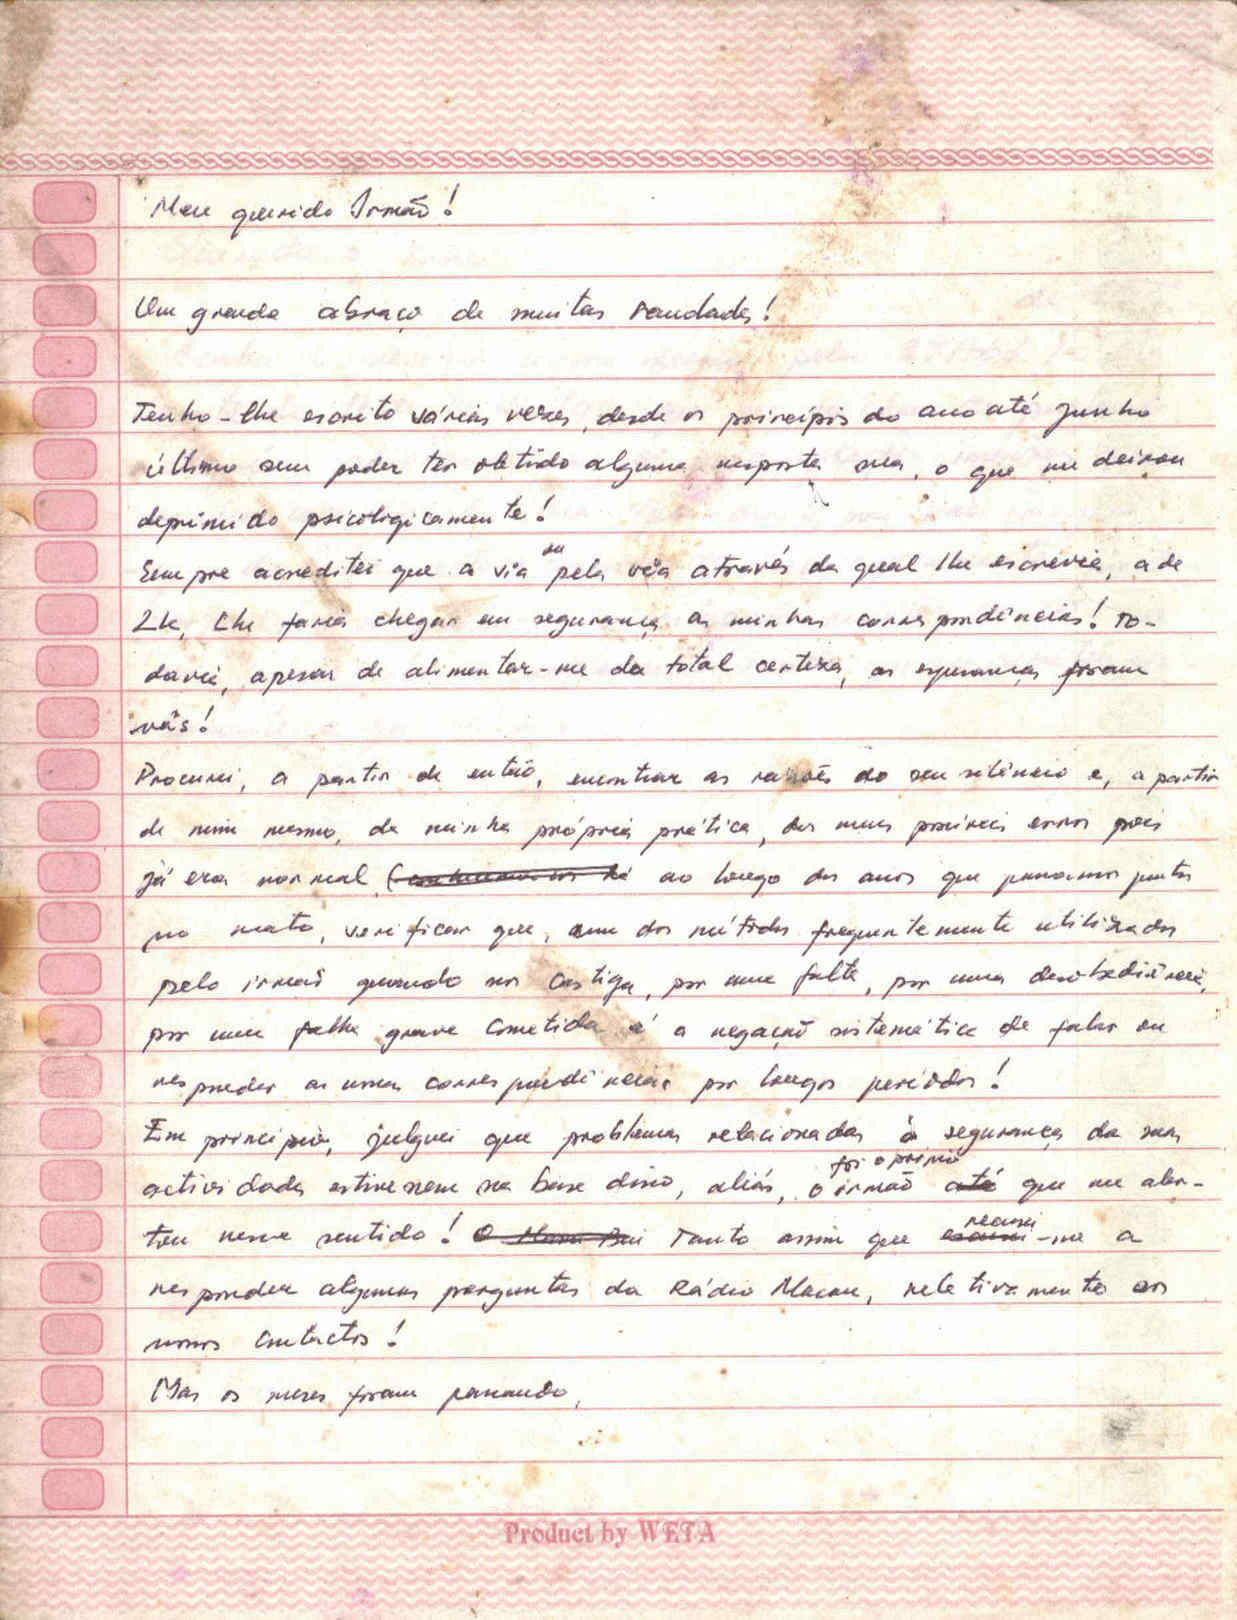 Meu querido Irmão!
Um grande abraço de muitas saudades!
Tenho-lhe escrito várias vezes, desde os princípios do ano até Junho
último sem poder ter obtido alguma resposta sua, o que me deixou
deprimido psicologicamente!
Sempre acreditei que a via ou pela via através da qual lhe escrevia, a de
Lk, lhe faria chegar em segurança as minhas correspondências! To-
davia, apesar de alimentar-me da total certeza, as esperanças foram
vãs!
Procurei, a partir de então, encontrar as razões do seu silêncio e, a partir
de mim mesmo, da minha própria prática, dos meus possíveis erros pois
já era normal, ao longo dos anos que passamos juntos
no mato, verificar que, um dos métodos frequentemente utilizados
pelo irmão quando nos castiga, por uma falta, por uma desobediência,
por uma falha grave cometida é a negação sistemática de falar ou
responder as nossas correspondências por longos períodos!
Em princípio, julguei que problemas relacionados à segurança da suas
actividades estivessem na base disso, aliás, foi o próprio
o irmão até que me aler-
tou nesse sentido! Tanto assim que recusei-me a
responder algumas perguntas da Rádio Macau, relativamente aos
nossos contactos!
Mas os meses foram passando,
Product by WETA